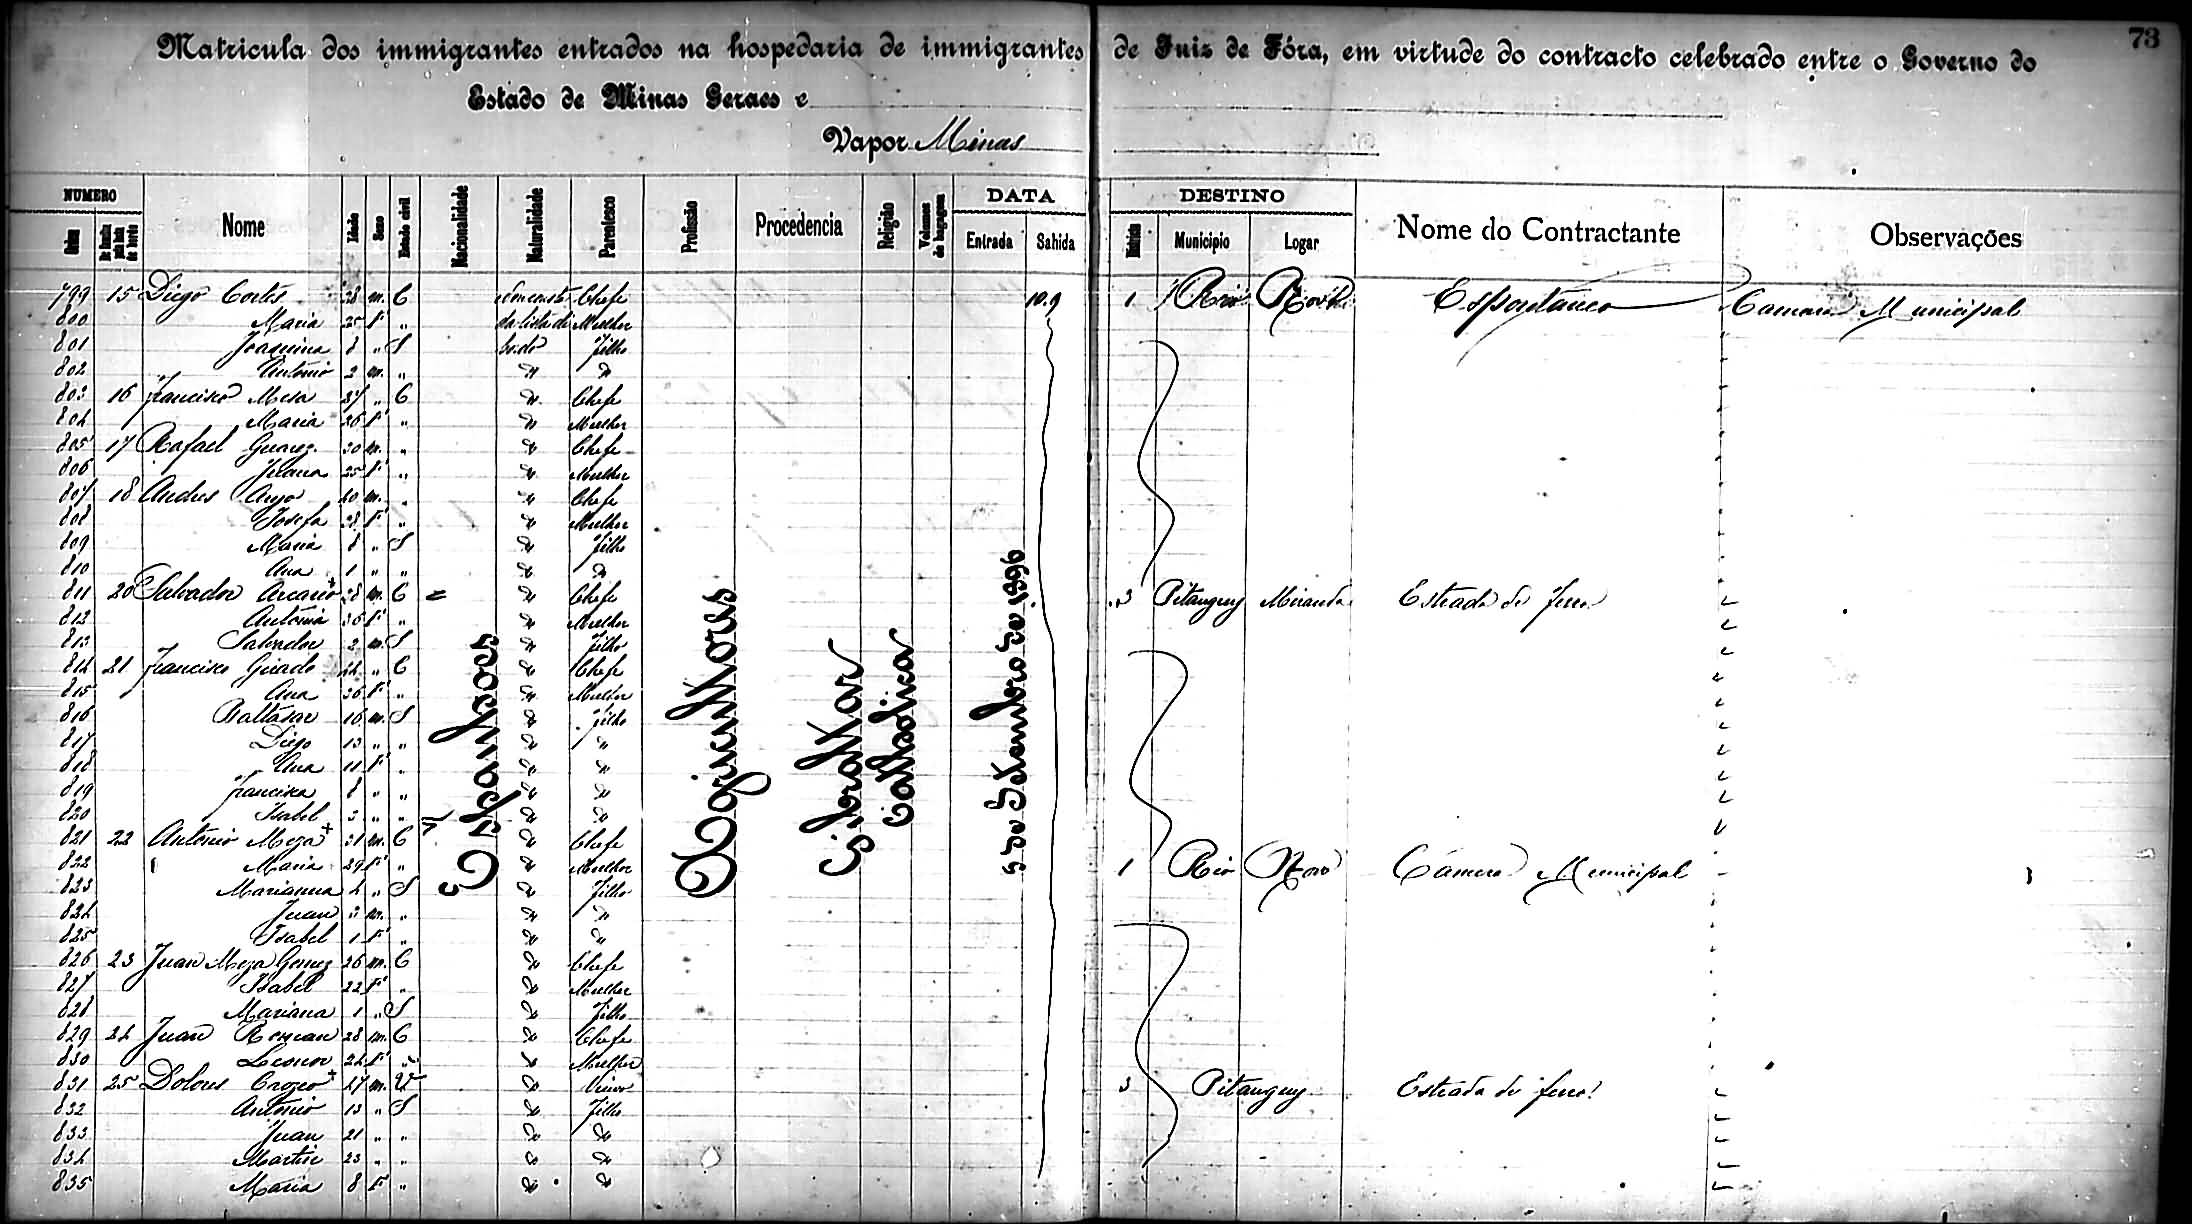 73
Matricula dos immigrantes entrados na hospedaria de immigrantes de Juiz de Fóra, em virtude do contracto celebrado entre o Governo do
Estado de Minas Geraes e
Vapor Minas
NUMERO Nome Idade Sexo Estado civil Nacionalidade Naturalidade Parentesco Profissão Procedencia Religião Volumes de bagagem DATA DESTINO Nome do Contractante Observações
Ordem Entrada Sahida Districto Municipio Logar
799 15 Diego Cortés 28 m. C Chefe 10.9 1 Rio Novo Espontaneo Camara Municipal
800 Maria 25 F " da lista de Mulher
801 Joaquina 8 " S bordo Filho
802 Antonio 2 m. " " "
803 16 Francisco Mesa 27 " C " Chefe
804 Maria 26 F " " Mulher
805 17 Rafael 30 m. " " Chefe
806 Juana 25 F " " Mulher
807 18 Andres 40 m. " " Chefe
808 Josefa 28 F " " Mulher
809 Maria 8 " S " Filho
810 Ana 1 " " " "
811 20 Salvador Arcario 28 m. C = " Chefe 3 Pitanguy Miranda Estrada de ferro
812 Antonia 36 F " " Mulher
813 Salvador 2 m. S " Filho
814 21 Francisco Girado 44 " C " Chefe
815 Ana 36 F " " Mulher
816 Baltasar 16 m. S " Filho
817 Diego 13 " " " "
818 Ana 11 F " " "
819 Francisca 8 " " " "
820 Isabel 3 " " " "
821 22 Antonio Meza 31 m. C " Chefe
822 Maria 29 F " " Mulher 1 Rio Novo Camara Municipal
823 Marianna 4 " S " Filho
824 Juan " m. " " "
825 Isabel 1 F " " "
826 23 Juan Meza Gomez 26 m. C " Chefe
827 Isabel 22 F " " Mulher
828 Mariana 1 " S " Filho
829 24 Juan Roman 28 m. C " Chefe
830 Leonor 24 F " " Mulher
831 25 Dolores Orozco 47 m. V " Viuvo 3 Pitanguy Estrada de ferro
832 Antonio 13 " S " Filho
833 Juan 21 " " " "
834 Martin 23 " " " "
835 Maria 8 F " " "
Espanhoes
Agricultores
Gibraltar
Catholica
5 de Setembro de 1896